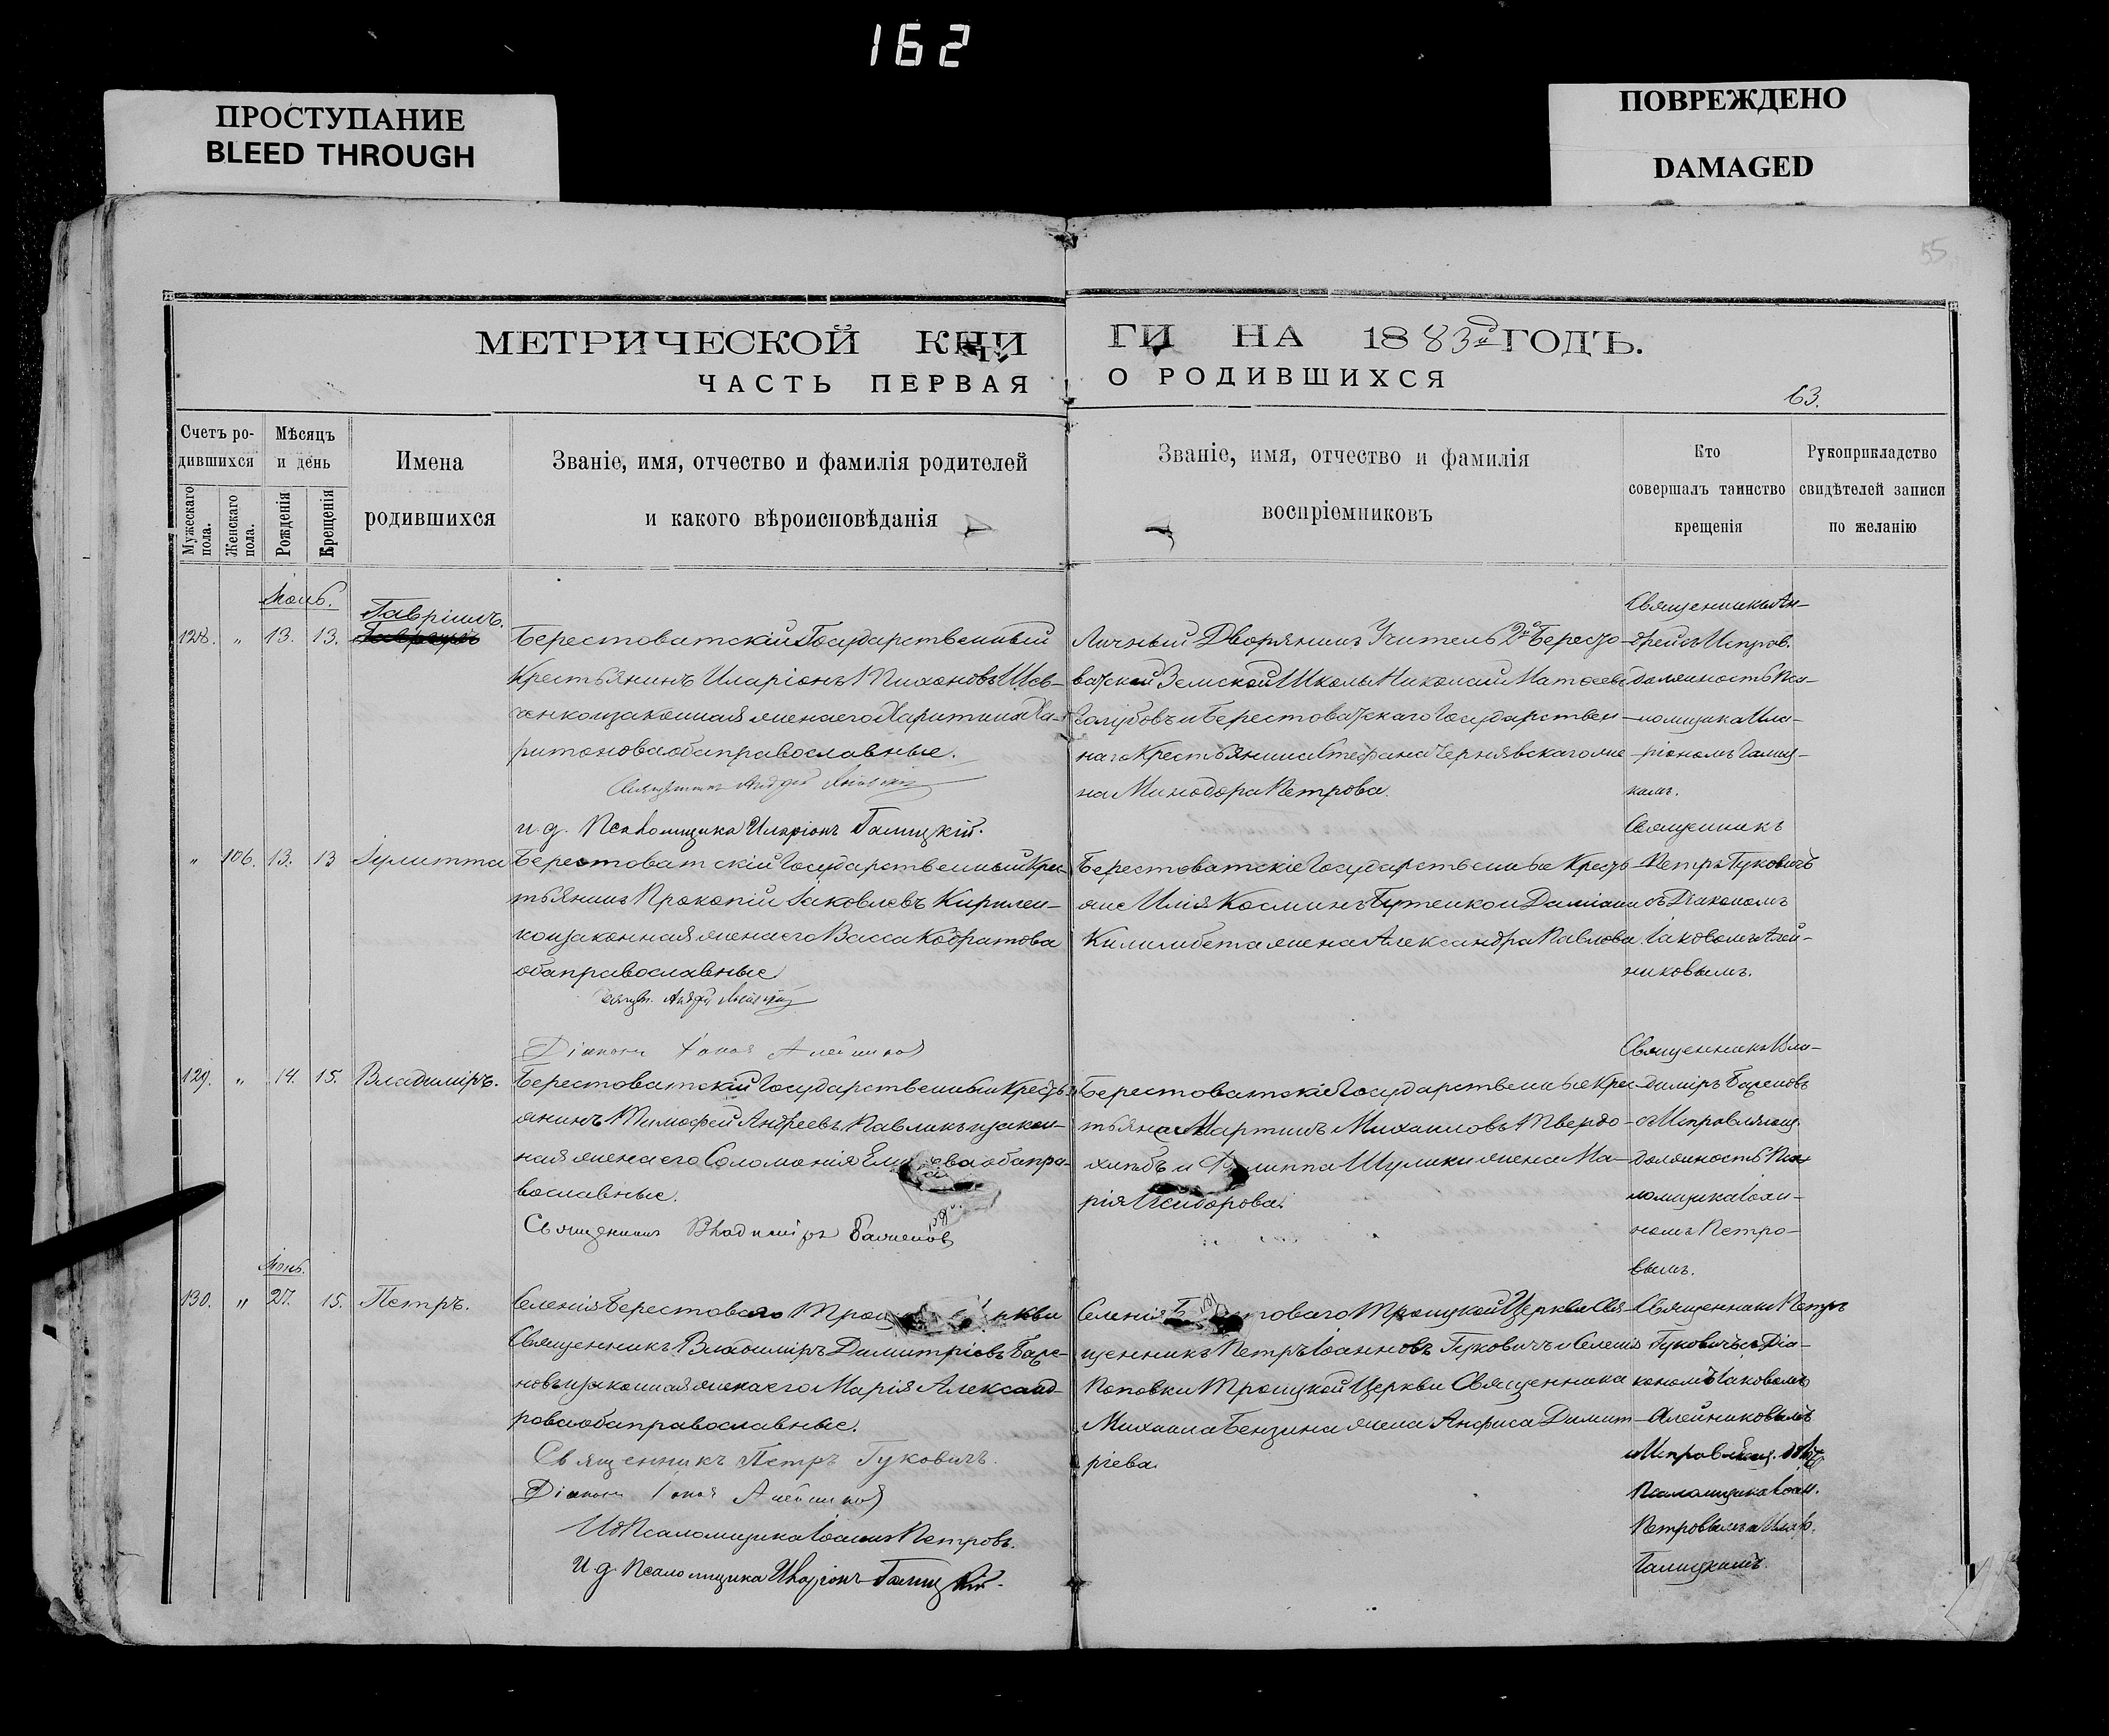 162
ПРОСТУПАНИЕ
BLEED THROUGH
ПОВРЕЖДЕНО
DAMAGED
55
МЕТРИЧЕСКОЙ КНИГИ НА 1883й ГОДЪ.
ЧАСТЬ ПЕРВАЯ О РОДИВШИХСЯ
63.
Счетъ родившихся
Мужескаго пола.
Женскаго пола.
Мѣсяцъ и день
Рожденія
Крещенія
Имена родившихся
Званіе, имя, отчество и фамилія родителей
и какого вѣроисповѣданія
Званіе, имя, отчество и фамилія
воспріемниковъ
Кто
совершалъ таинство
крещенія
Рукоприкладство
свидѣтелей записи
по желанію
128. " 13. 13. Гавріилъ.
Берестоватскій Государственный
Крестьянинъ Иларіонъ Тихоновъ Шев-
ченко и законная жена его Харитина Ха-
ритонова оба православные.
Священникъ Андрей
и. д. Псаломщика Иларіонъ Галицкій.
Личный Дворянинъ Учитель 2й Бересто-
ватской Земской Школы Николай Матѳеевъ
Голубовъ и Берестоватскаго Государствен-
наго Крестьянина Стефана Чернявскаго же-
на Минодора Петрова.
Священникъ Ан-
дрей съ Исправ.
должность Пса-
ломщика Ила-
ріономъ Галиц-
кимъ.
" 106. 13. 13 Іулитта
Берестоватскій Государственный Крес-
тьянинъ Прокопій Іаковлевъ Кирилен-
ко и законная жена его Васса Кодратова
оба православные
Священ. Андрей
Діаконъ Іаковъ Алейниковъ
Берестоватскіе Государственные Кресть-
яне Илія Косминъ Бутенко и Даміана
Килимбета жена Александра Павлова.
Священникъ
Петръ Гуковичъ
съ Діакономъ
Іаковомъ Алей-
никовымъ.
129. " 14. 15. Владиміръ.
Берестоватскій Государственный Кресть-
янинъ Тимофей Андреевъ Павликъ и закон-
ная жена его Соломонія ва оба пра-
вославные.
Священникъ Владиміръ Баженовъ
Берестоватскіе Государственные Крес-
тьяне Мартинъ Михаиловъ Твердо-
хлѣбъ и Филиппа Шулики жена Ма-
рія Исидорова.
Священникъ Вла-
диміръ Баженовъ
съ Исправляющ.
должность Пса-
ломщика Іоан-
номъ Петро-
вымъ.
Іюнь.
130. " 27. 15. Петръ.
Селенія Берестоваго Троиц ркви
Священникъ Владиміръ Димитріевъ Баже-
новъ и законная жена его Марія Александ-
рова оба православные.
Священникъ Петръ Гуковичъ.
Діаконъ Іаковъ Алейниковъ
ИД Псаломщика Іоаннъ Петровъ.
И д Псаломщика Иларіонъ Галицкій.
Селенія Б товаго Троицкой Церкви Свя-
щенникъ Петръ Іоанновъ Гуковичъ и Селенія
Поповки Троицкой Церкви Священника
Михаила Бензина жена Анфиса Димит-
ріева.
Священникъ Петръ
Гуковичъ съ Діа-
кономъ Іаковомъ
Алейниковымъ
и Исправляющ.
Псаломщика Іоан.
Петровымъ и Илар.
Галицкимъ.